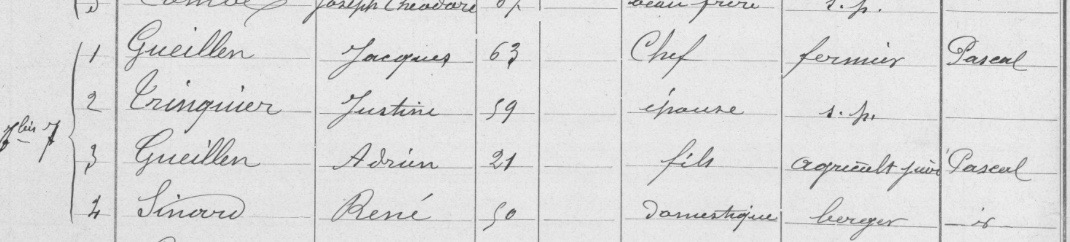 Joseph Théodore beau frère s.p.
1 Gueillen Jacques 63 Chef fermier Pascal
2 Trinquier Justine 59 épouse s.p.
7 bis 7
3 Gueillen Adrien 21 fils agricult Pascal
4 Sinard René 50 domestique berger is